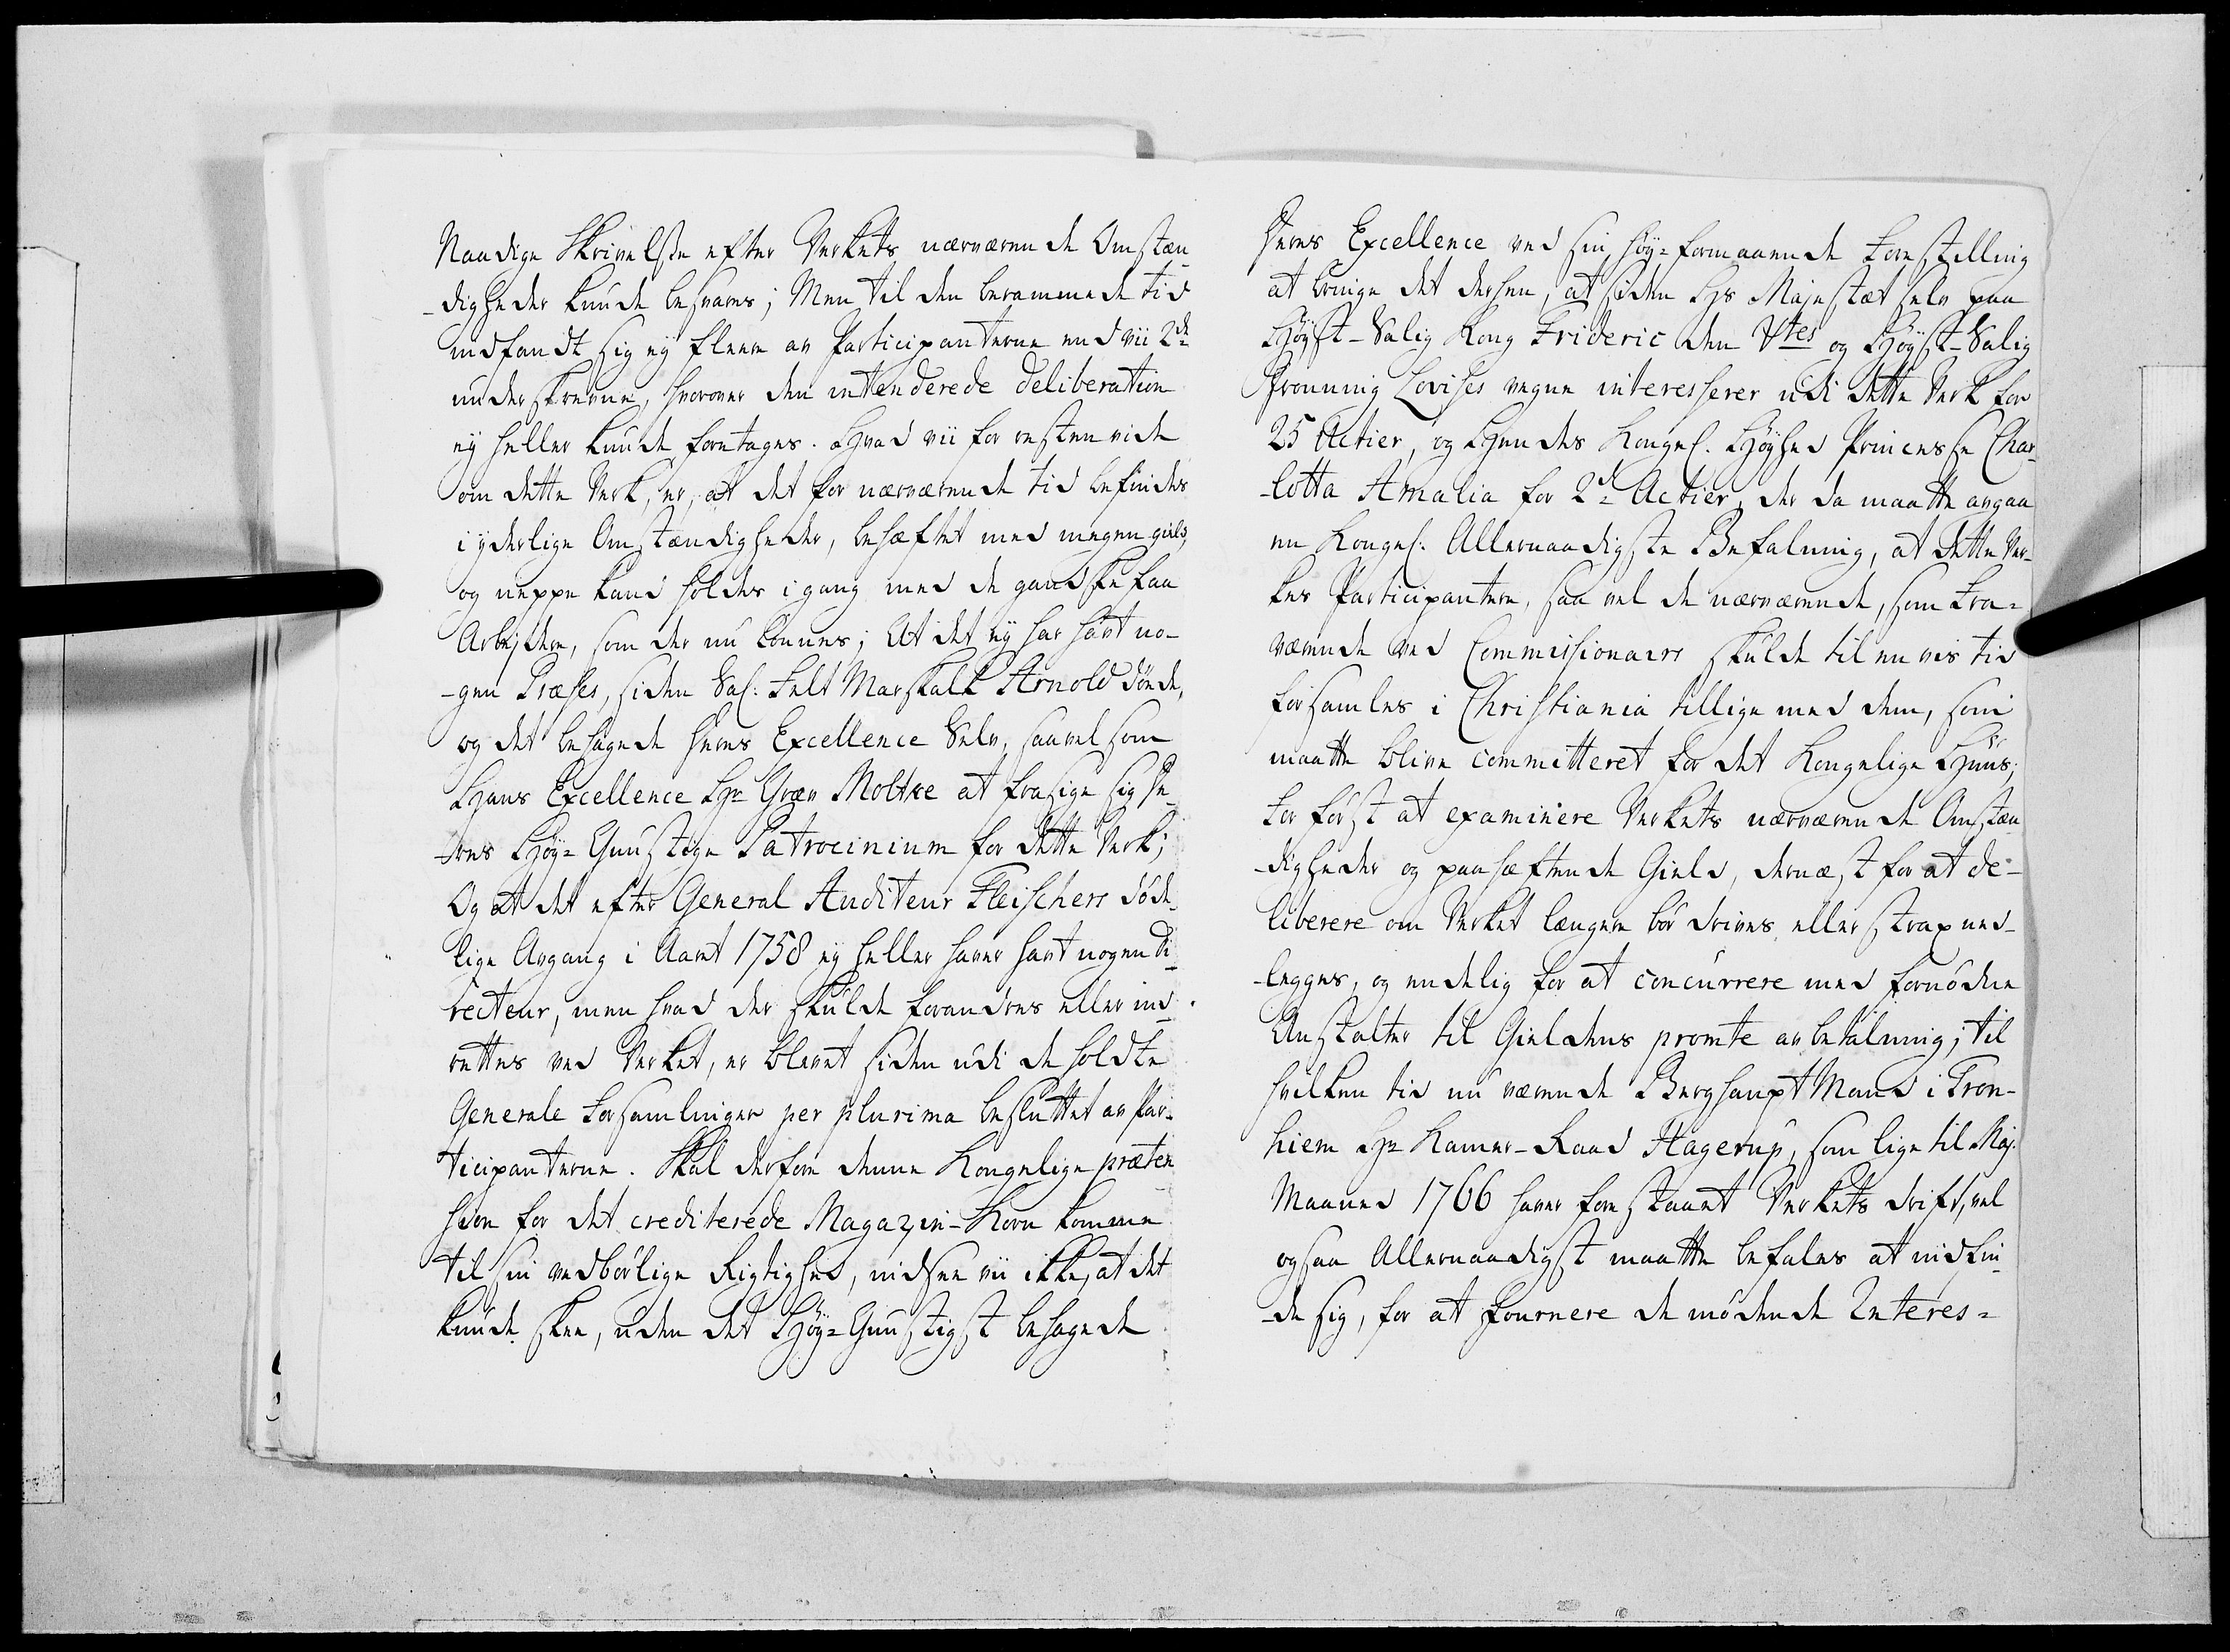 Naadige Skrivelse efter Verkets nærværende Omstæn
-digheder kunde besvares; Men til den berammede tid
indfandt sig ey fleere av Participanterne end vii 2de
underskrevne, hvorover den intenderede deliberation
ey heller kunde foretages. Hvad vii for resten vide
om dette Verk, er, at det for nærværende tid befindes
i yderlige Omstændigheder, behæftet med megen gield,
og neppe kand holdes i gang med de gandske faa
Arbejdere, som der nu lønnes; At det ey har hävt no-
-gen Præses, siden Sal: Felt Marskalk Arnold döde,
og det behagede Deres Excellence Selv, saavel som
Hans Excellence Hr Grev Moltke at frasige sig De
-res Høy=Gunstige Patrocinium for dette Verk;
Og at det efter General Auditeur Fleischers döde
lige Avgang i Aaret 1758 ey heller haver havt nogen Di
recteur, men hvad der skulde forandres eller ind
rettes ved Verket, er blevet siden udi de holdte
Generale forsamlinger per plurima besluttet av Par-
ticipanterne. Skal derfore denne Kongelige præten
sion for det crediterede Magazin-Korn komme
til sin vedbörlige Rigtighed, indsee vii ikke, at det
kunde skee, uden det Høy=Gunstigst behagede
Deres Excellence ved sin høy=formaaende Forestilling
at bringe det derhen, at siden Hs Majestæt selv paa
Høyst-Salig Kong Frideric den Vtes og Høyst-Salig
Dronning Lovises vegne interesserer udi dette Verk for
25 Actier, og Hendes Kongel. Høyhed Princesse Char
-lotta Amalia for 2de Actier, der da maatte avgaa
en Kongel: Allernaadigste Befalning, at dette Ver-
kes Participantere, saa vel de nærværende, som Fra=
værende ved Commissionairs skulde til en vis tid
forsamles i Christiania tillige med dem, som
maatte blive committeret for det Kongelige Huus;
For först at examinere Verkets nærværende Omstæn
-digheder og paahæftende Gield, dernæst for at de-
liberere om Verket længere bör drives, eller strax ned-
-legges, og endelig for at concurrere med fornödne
Anstalter til Gieldens promte avbetalning; til
hvilken tid nu værende Berghauptmand i Tron-
hiem Hr Kamer-Raad Hagerup, som lige til Maj
Maaned 1766 haver forestaaet Verkets drift, vel
ogsaa Allernaadigst maatte befales at indfin
-de sig, for at fournere de mödende Interes=